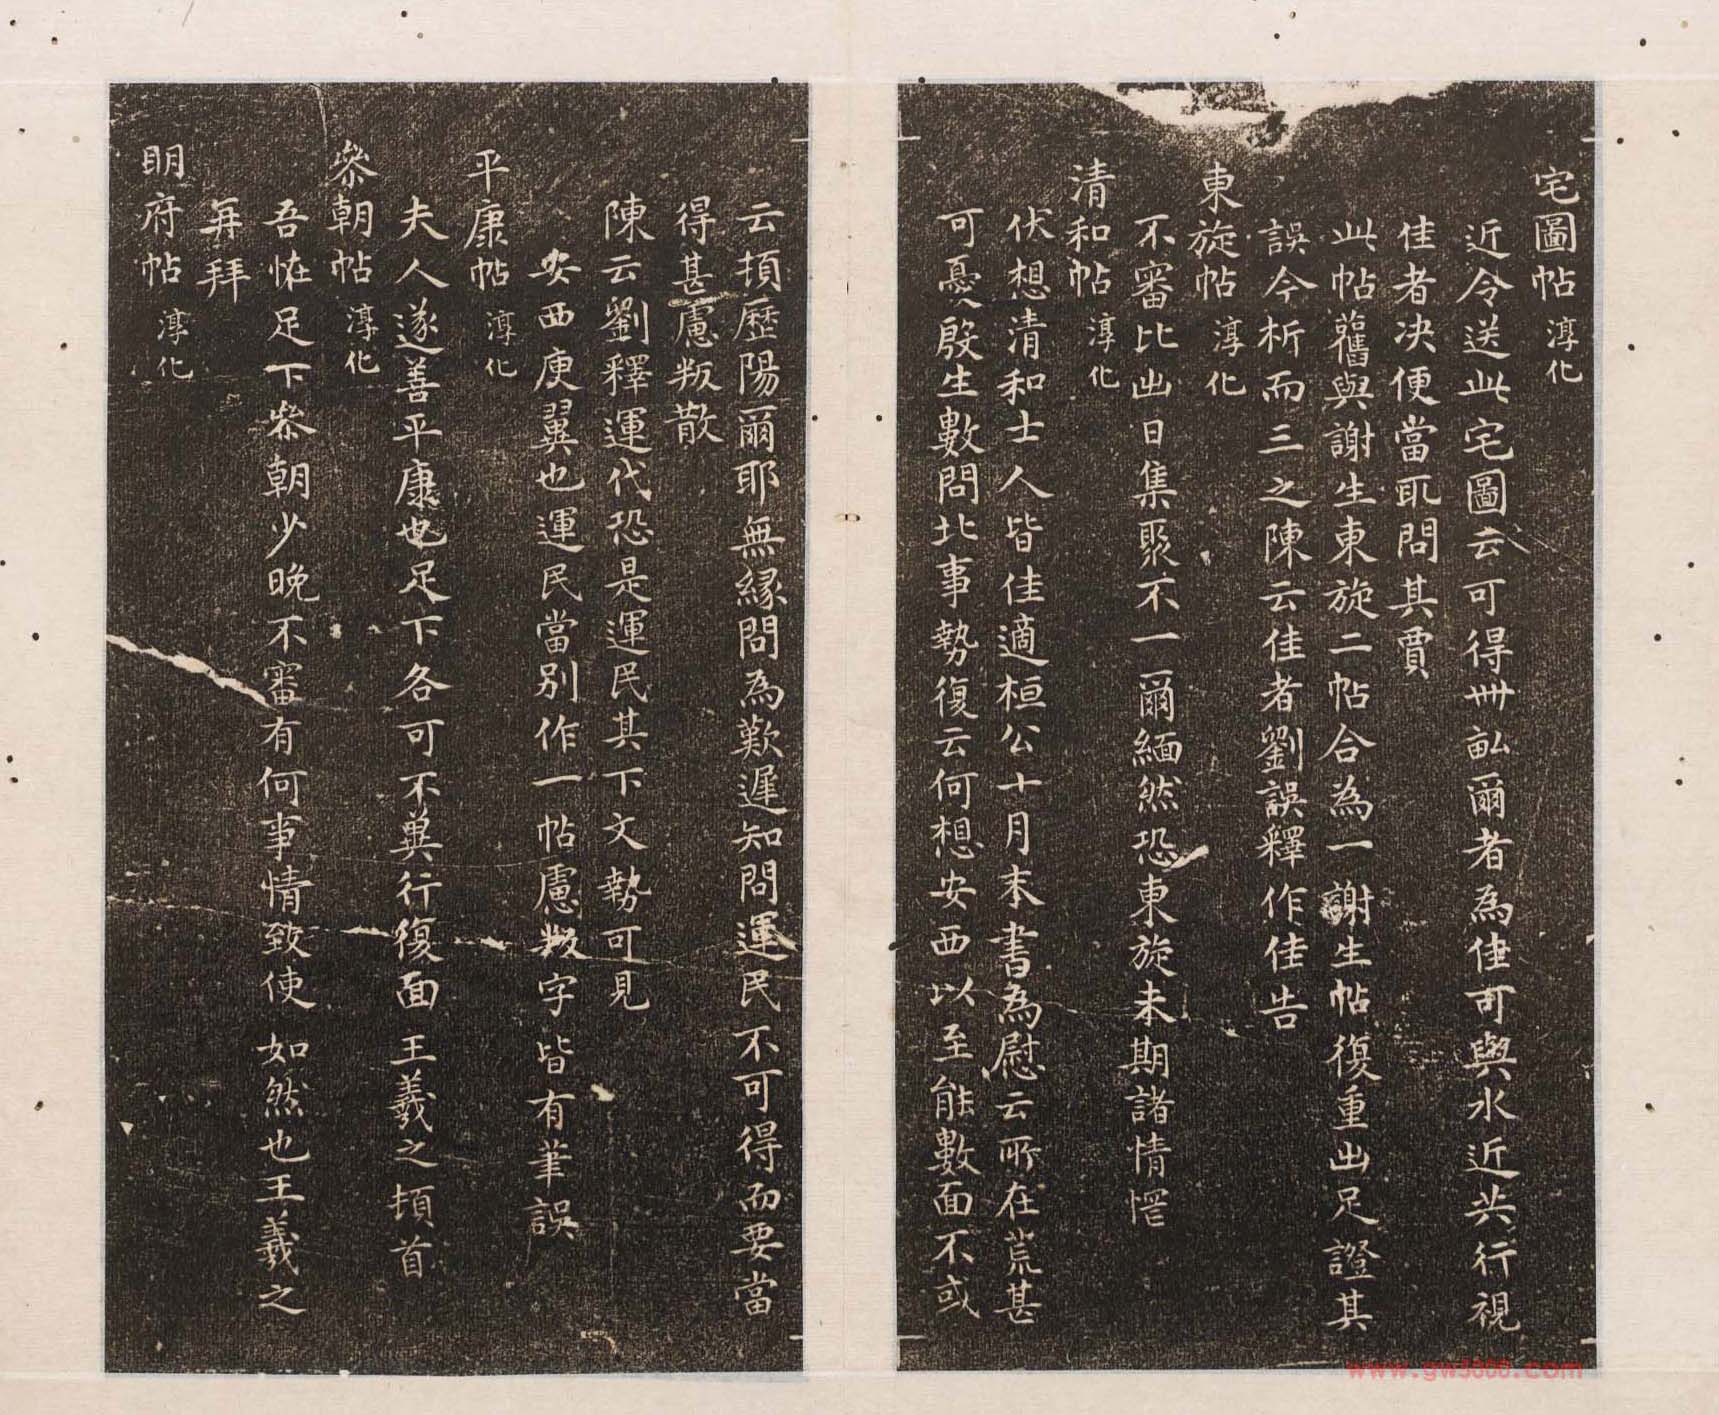 宅圖帖 淳化
近令送此宅圖云可得卌畝爾者為佳可與水近共行視
佳者決便當取問其賈
此帖舊與謝生東旋二帖合為一謝生帖復重出足證其
誤今析而三之陳云佳者劉誤釋作佳告
東旋帖 淳化
不審比出日集聚不一爾緬然恐東旋未期諸情罔
清和帖 淳化
伏想清和士人皆佳適桓公十月末書為慰云所在荒甚
可憂殷生數問北事勢復云何想安西以至能數面不或
云頓歷陽爾耶無緣問為歎遲知問運民不可得而要當
得甚慮叛散
陳云劉釋運代恐是運民其下文勢可見
安西庾翼也運民當別作一帖慮叛字皆有筆誤
平康帖 淳化
夫人遂善平康也足下各可不冀行復面 王羲之頓首
叅朝帖 淳化
吾恠足下叅朝少晚不審有何事情致使如然也王羲之
再拜
明府帖 淳化
www.gw5000.com